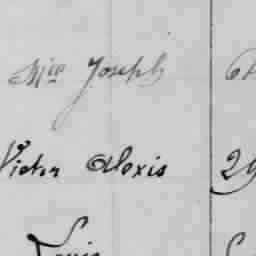 Joseph
Victor Alexis 29
Louis